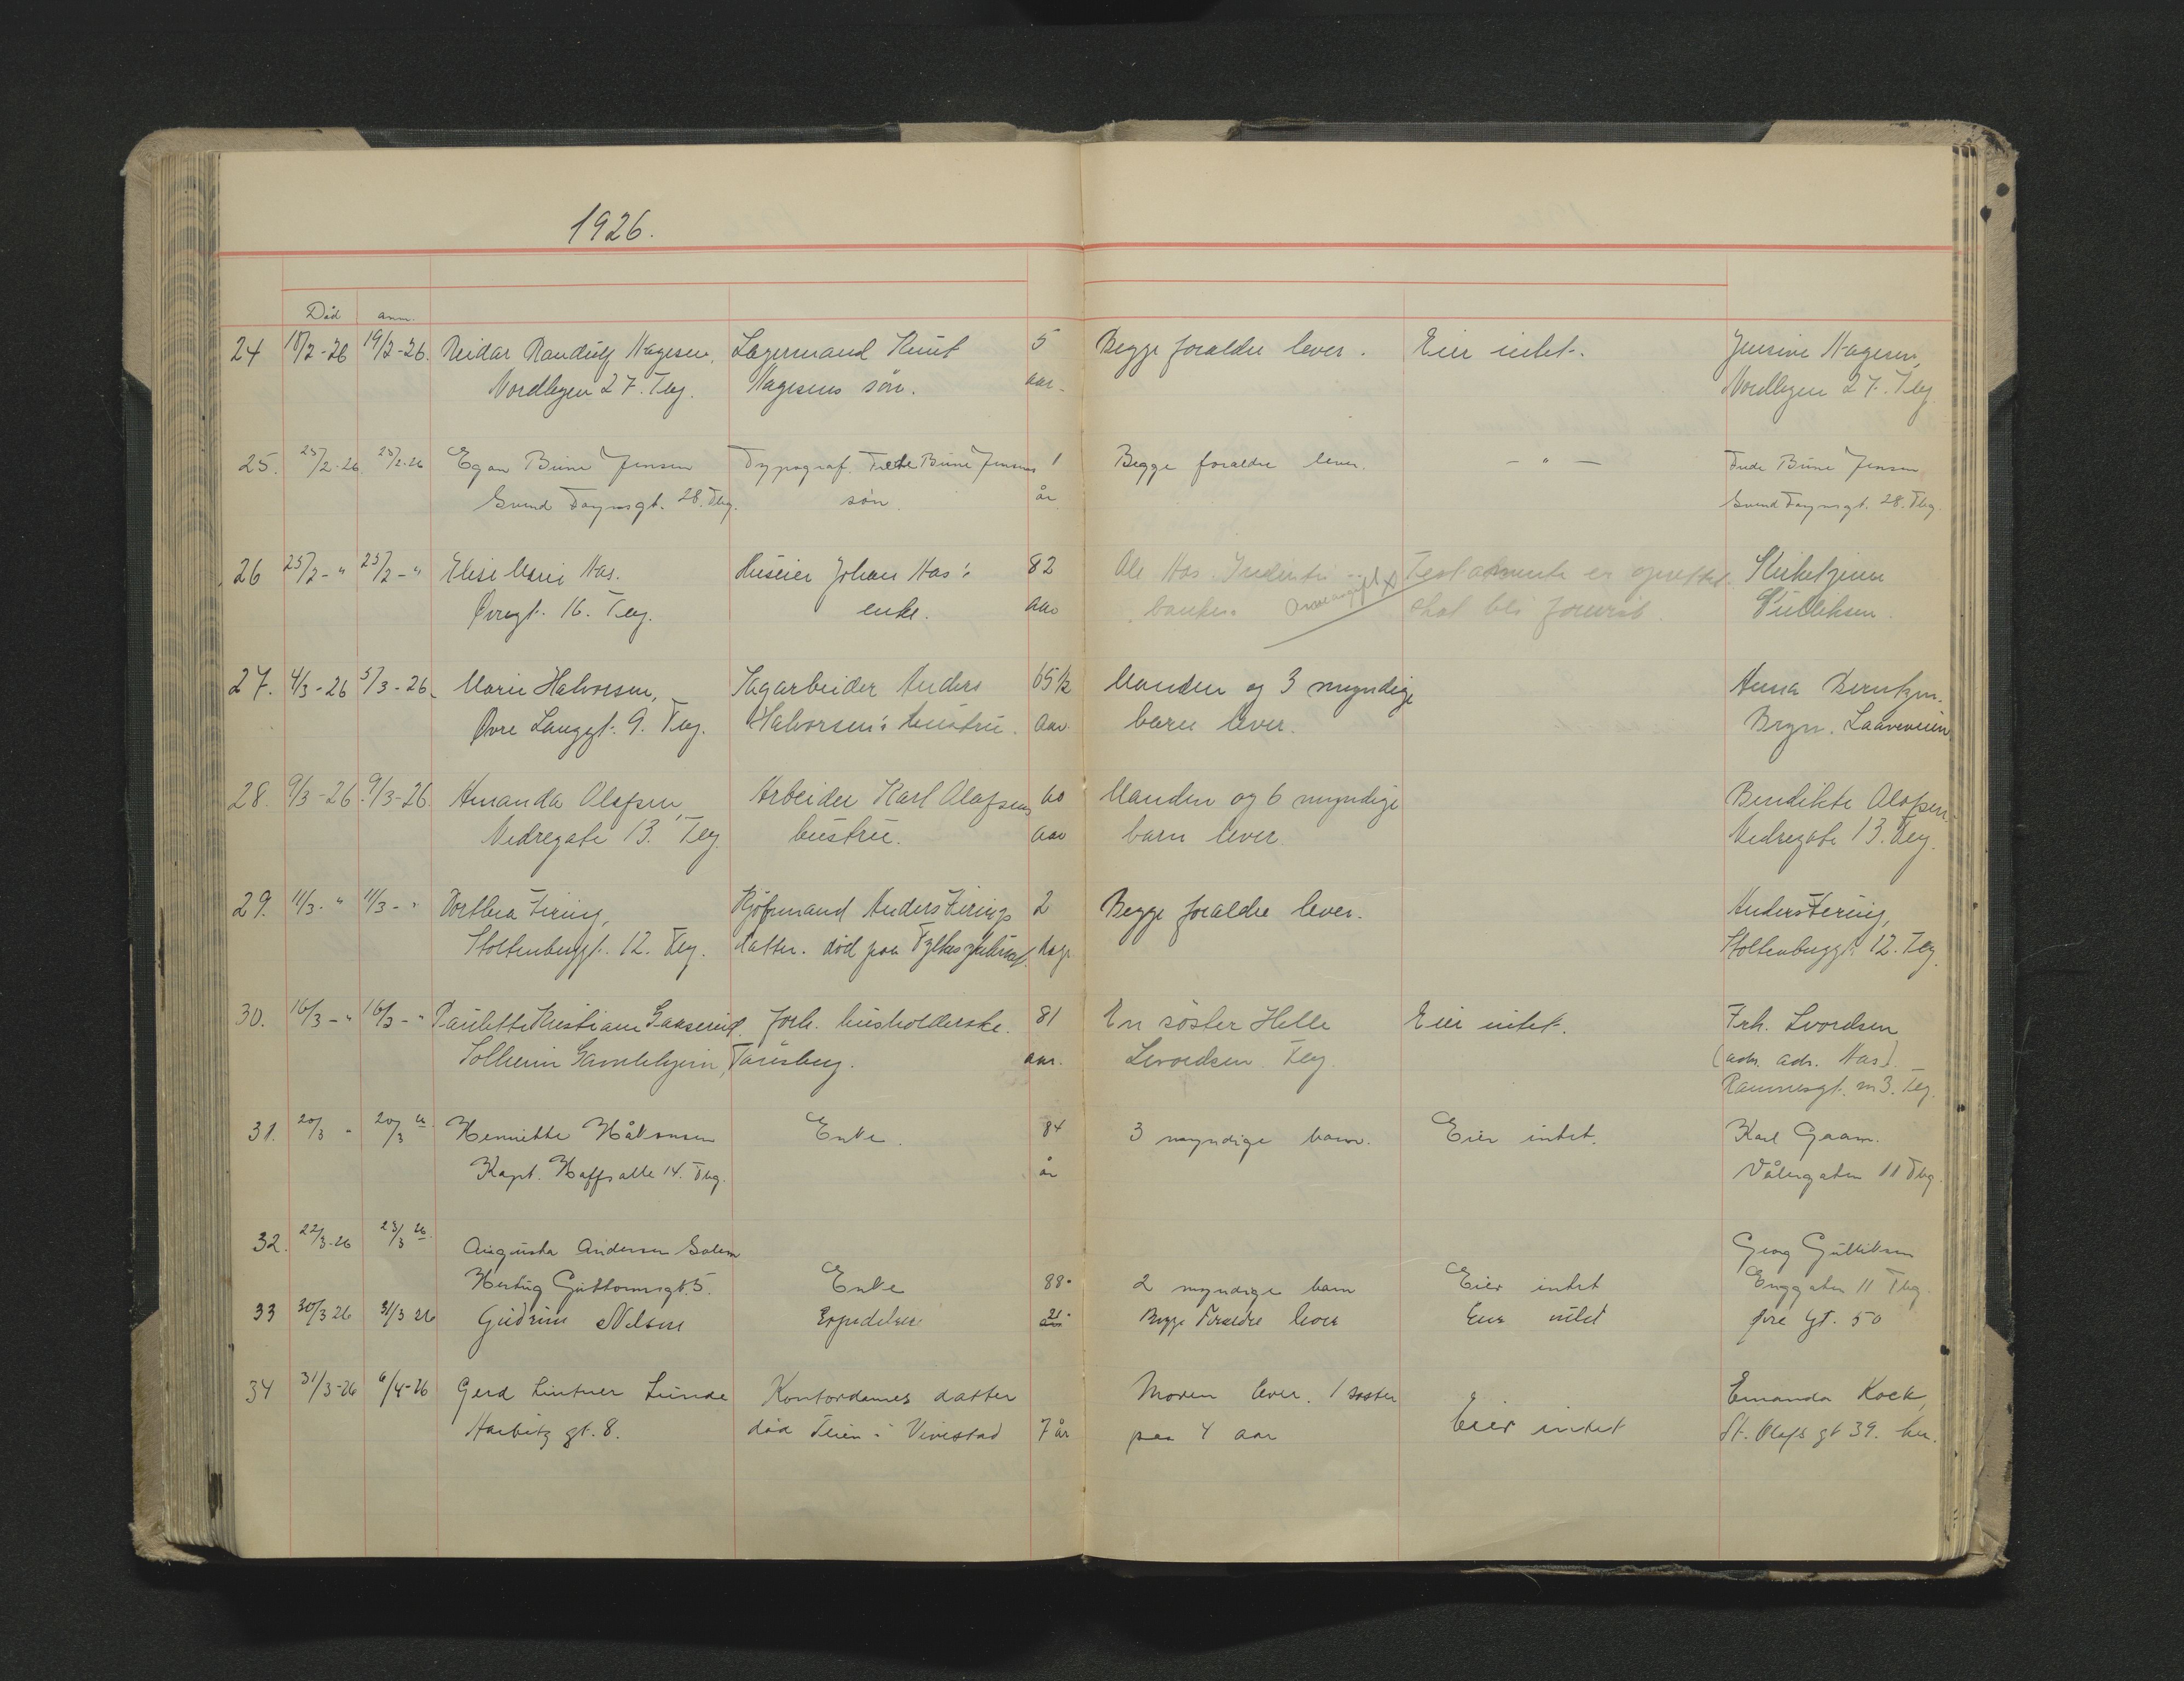 1926.
Död anm.
24 18/2-26 19/2-26. Reidar Randulf Hagesen, Lagermand Knut 5 Begge foraldre lever. Eier intet. Jensine Hagesen,
Nordbyen 27. Tbg. Hagesens sön. aar. Nordbyen 27. Tbg.
25. 25/2-26 25/2-26 Egon Bune Jensen Typograf. Bune Jensens 1 Begge foraldre lever. — " — Bune Jensen
Svend Foynsgt. 28. Tbg. sön. år Svend Foynsgt. 28. Tbg.
26 25/2-" 25/2-" Elise Marie Has. Huseier Johan Has's 82 Ole Has. Testamente er oprettet.
Øvregt. 16. Tbg. enke. aar skal bli
27. 4/3-26 5/3-26 Marie Halvorsen, Sagarbeider Anders 65 1/2 Manden og 3 myndige Anna Berntzen.
Øvre Langgt. 9. Tbg. Halvorsen's hustru. aar. barn lever. Bryn.
28. 9/3-26. 9/3-26. Amanda Olafsen, Arbeider Karl Olafsens 60 Manden og 6 myndige Bendikte Olafsen.
Nedregate 13. Tbg. hustru. aar barn lever. Nedregate 13. Tbg.
29. 11/3-" 11/3-" Dorthea Firing, Kjöpmand Anders Firings 2 Begge foraldre lever. Anders Firing,
Stoltenbergt. 12. Tbg. datter. död paa dage Stoltenbergt. 12. Tbg.
30. 16/3-" 16/3-" Paulette Kristiane Gaaserud. forh. husholderske. 81 En söster Helle Eier intet. Frk.
Solheim Gamlehjem, Tønsberg. aar. Tbg. (adr. adr. Has).
m 3. Tbg.
31. 20/3 " 20/3 26 Henriette Håkonsen Enke. 84 3 myndige barn. Eier intet. Karl
Kapt. Hoffsalle 14. Tbg. år Vålegaten 11 Tbg.
32. 22/3-26 23/3 26. Augusta Andersen Solem Georg Gulliksen
Hertug Guttormsgt 5. Enke 88 2 myndige barn Eier intet Enggaten 11 Tbg.
33 30/3 26 31/3 26 Gudrun Nilsen 21 Begge foraldre lever Eier intet Øvre gt. 50
34 31/3-26 6/4-26 Gerd Lintner Lunde Kontordames datter Moren lever. 1 søster Emanda Kock,
Harbitz gt. 8. död Teien i Vivestad 7 år paa 4 aar Eier intet St. Olafs gt 39. her.